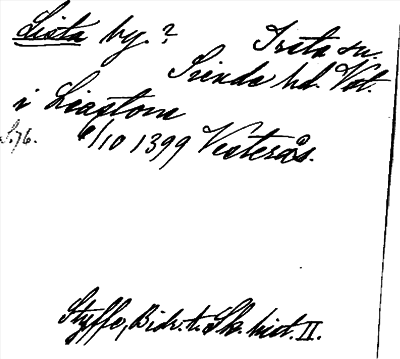 Lista by. ?
Irsta sn.
Siende hd. Vstm.
i Liastom
S. 76. 6/10 1399 Vesterås.
Styffe, Bidr. t. Sk. hist. II.